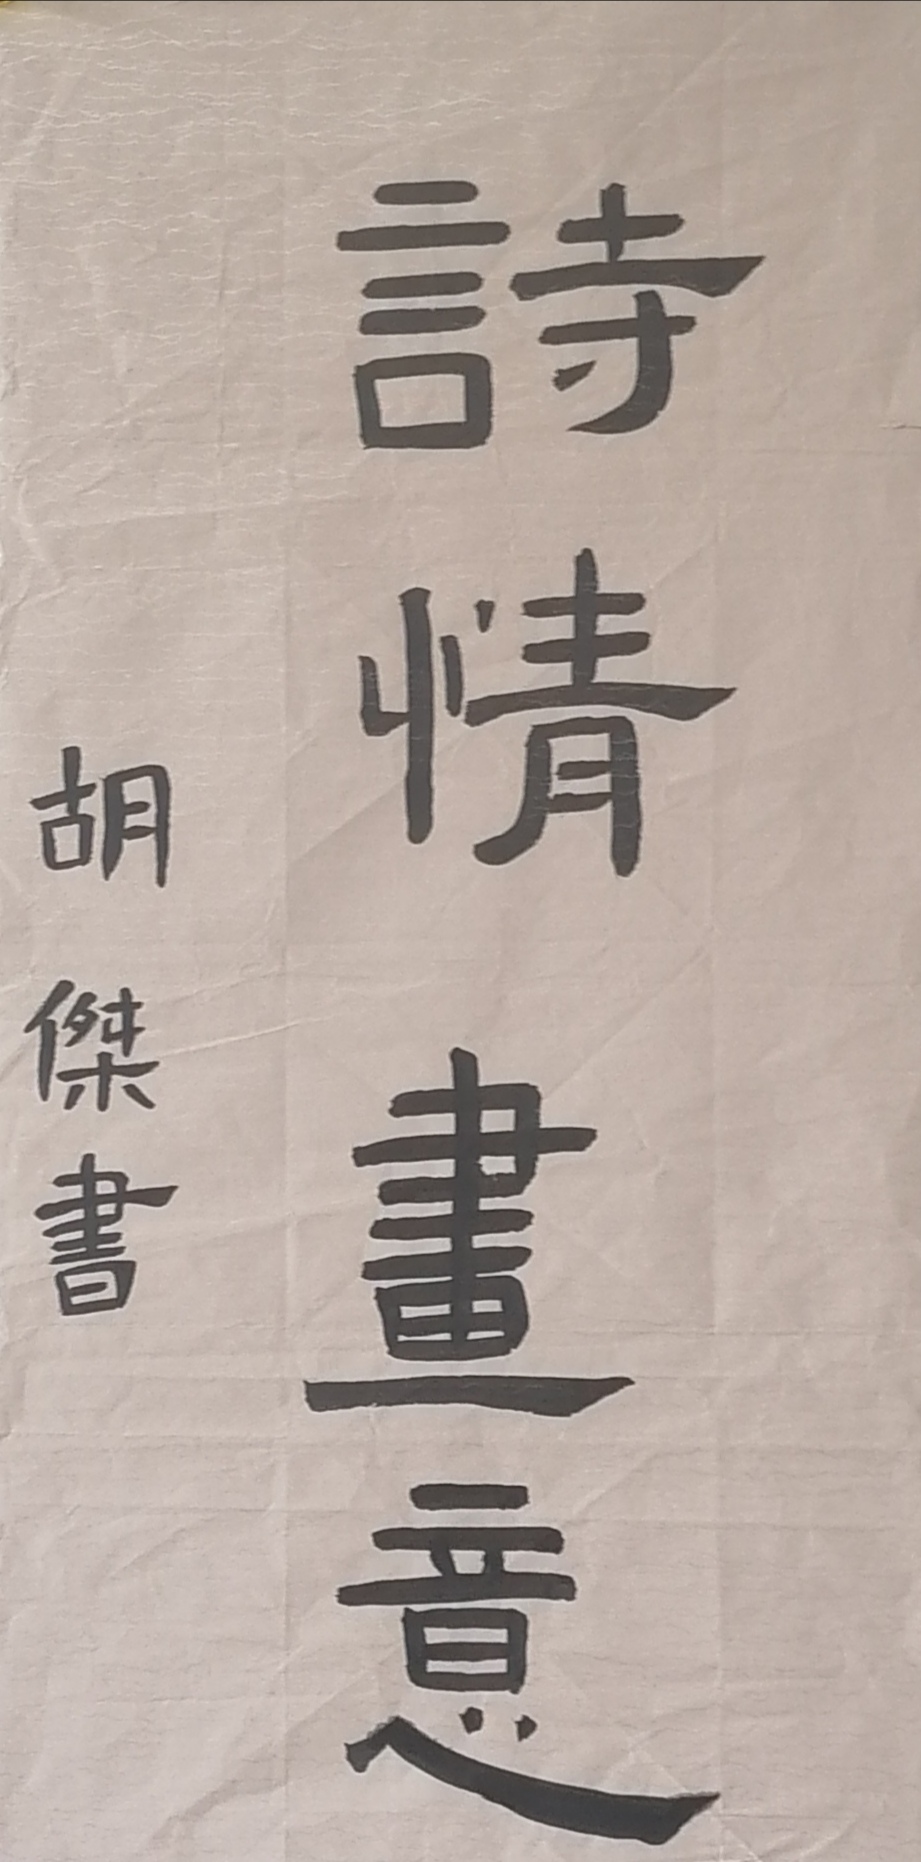 詩情畫意
胡傑書